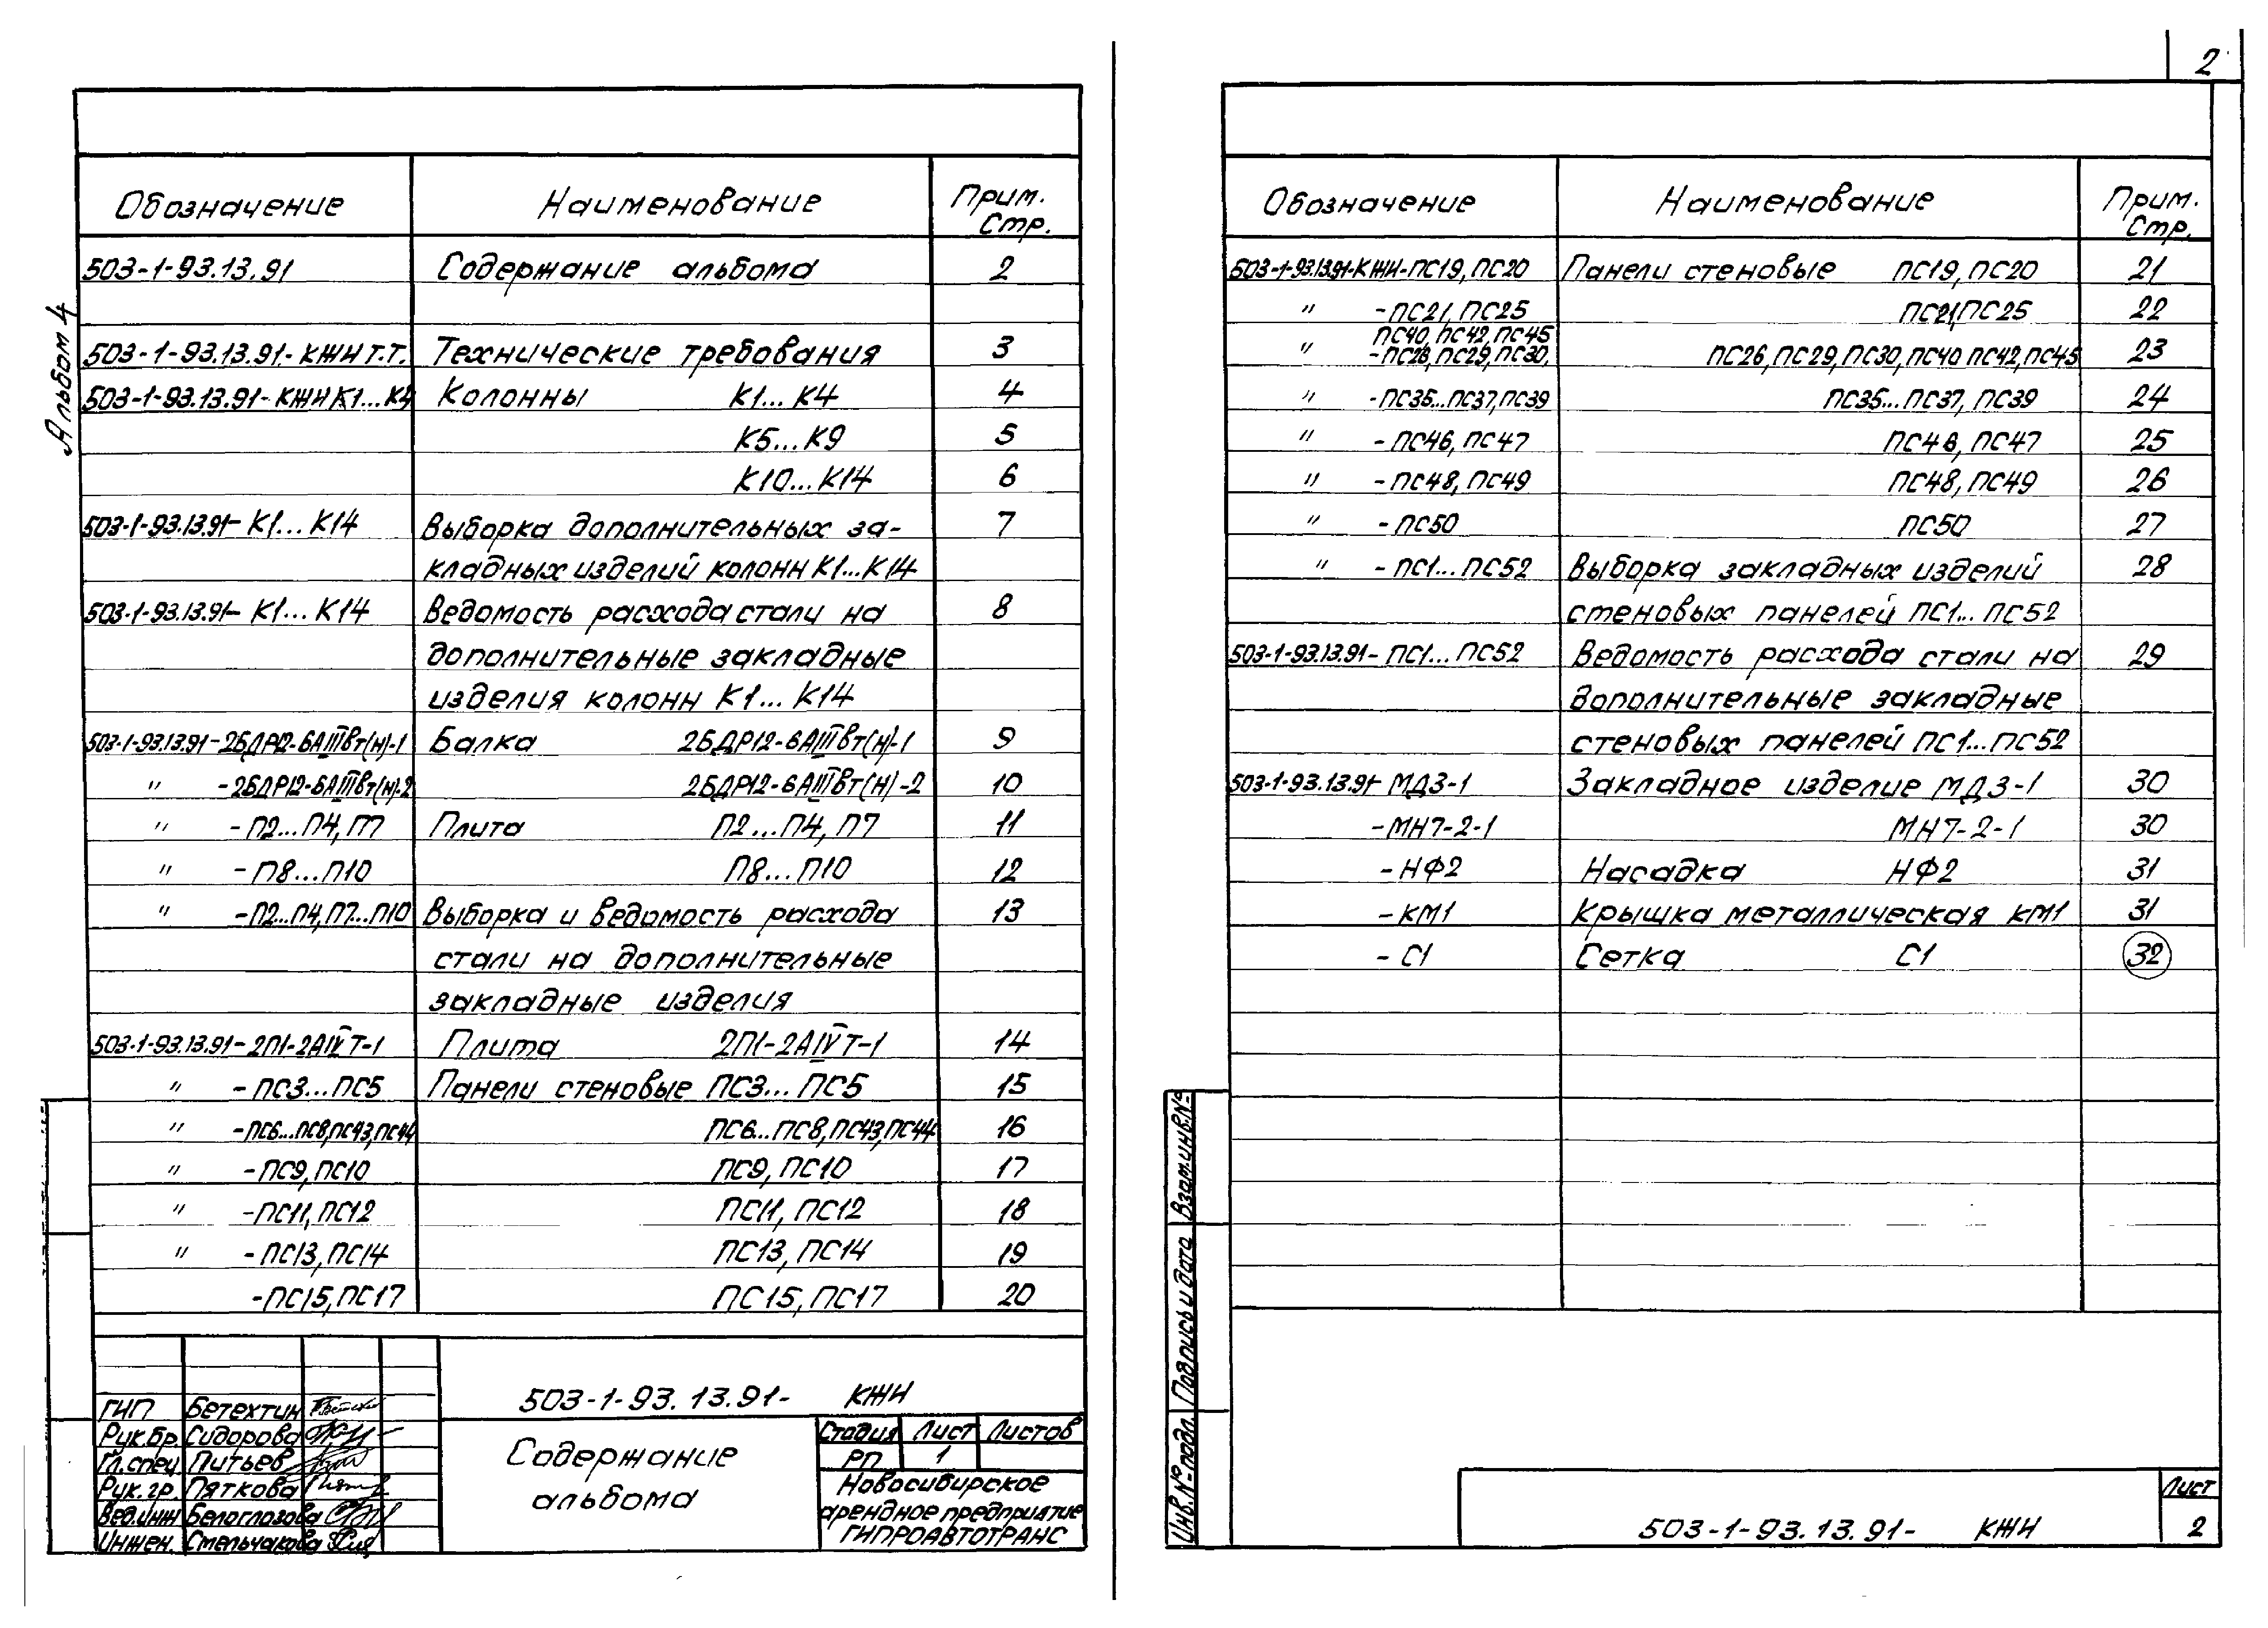 2
Альбом 4
Обозначение Наименование Прим. Стр.
503-1-93.13.91 Содержание альбома 2
503-1-93.13.91-КЖИ Т.Т. Технические требования 3
503-1-93.13.91-КЖИ К1...К4 Колонны К1...К4 4
К5...К9 5
К10...К14 6
503-1-93.13.91- К1...К14 Выборка дополнительных за- 7
кладных изделий колонн К1...К14
503-1-93.13.91- К1...К14 Ведомость расхода стали на 8
дополнительные закладные
изделия колонн К1...К14
503-1-93.13.91-2БДР12-6АIIIВт(н)-1 Балка 2БДР12-6АIIIВт(н)-1 9
" -2БДР12-6АIIIВт(н)-2 2БДР12-6АIIIВт(н)-2 10
" -П2...П4, П7 Плита П2...П4, П7 11
" -П8...П10 П8...П10 12
" -П2...П4, П7...П10 Выборка и ведомость расхода 13
стали на дополнительные
закладные изделия
503-1-93.13.91-2П1-2АIVТ-1 Плита 2П1-2АIVТ-1 14
" -ПС3...ПС5 Панели стеновые ПС3...ПС5 15
" -ПС6...ПС8,ПС43,ПС44 ПС6...ПС8,ПС43,ПС44 16
" -ПС9, ПС10 ПС9, ПС10 17
" -ПС11, ПС12 ПС11, ПС12 18
" -ПС13, ПС14 ПС13, ПС14 19
-ПС15, ПС17 ПС15, ПС17 20
503-1-93.13.91- КЖИ
ГИП Бетехтин
Рук.бр. Сидорова
Гл.спец Питьев
Рук.гр. Пяткова
Вед.инж Белоглазова
Инжен. Стельчакова
Содержание
альбома
Стадия Лист Листов
РП 1
Новосибирское
арендное предприятие
ГИПРОАВТОТРАНС
Обозначение Наименование Прим. Стр.
503-1-93.13.91-КЖИ-ПС19, ПС20 Панели стеновые ПС19, ПС20 21
" -ПС21, ПС25 ПС21, ПС25 22
ПС40, ПС42, ПС45
" -ПС26, ПС29, ПС30, ПС26, ПС29, ПС30, ПС40 ПС42, ПС45 23
" -ПС35...ПС37, ПС39 ПС35...ПС37, ПС39 24
" -ПС46, ПС47 ПС46, ПС47 25
" -ПС48, ПС49 ПС48, ПС49 26
" -ПС50 ПС50 27
" -ПС1...ПС52 Выборка закладных изделий 28
стеновых панелей ПС1...ПС52
503-1-93.13.91- ПС1...ПС52 Ведомость расхода стали на 29
дополнительные закладные
стеновых панелей ПС1...ПС52
503-1-93.13.91- МД3-1 Закладное изделие МД3-1 30
-МН7-2-1 МН7-2-1 30
-НФ2 Насадка НФ2 31
-КМ1 Крышка металлическая КМ1 31
-С1 Сетка С1 32
Взам.инв.№
Подпись и дата
Инв.№ подл.
503-1-93.13.91- КЖИ
Лист
2